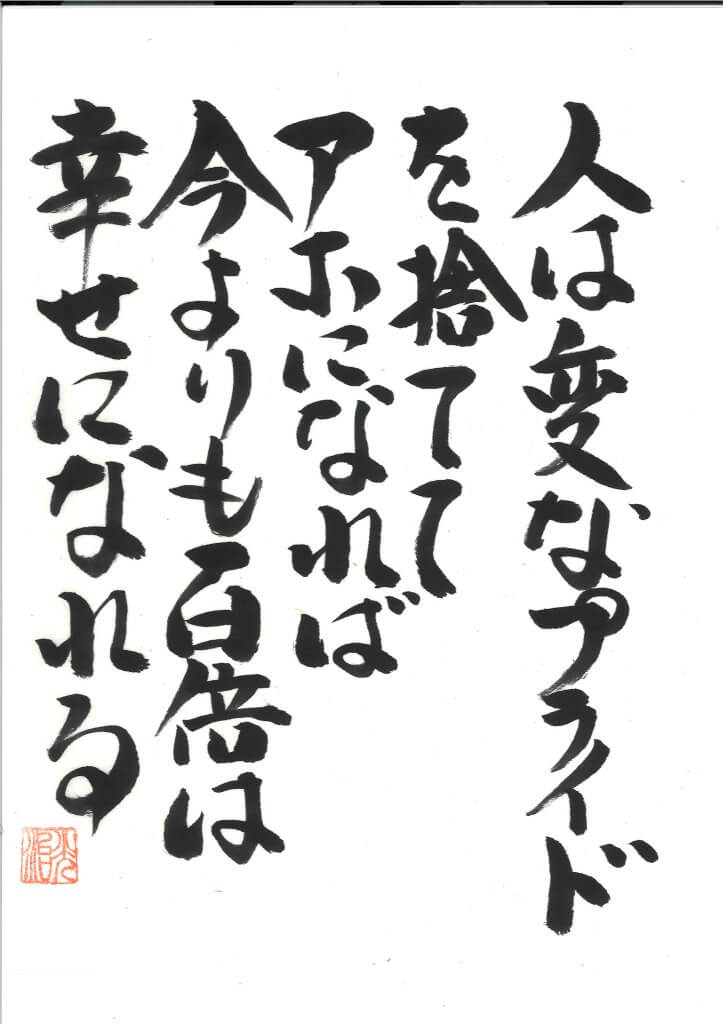 人は変なプライド
を捨てて
アホになれば
今よりも百倍は
幸せになれる